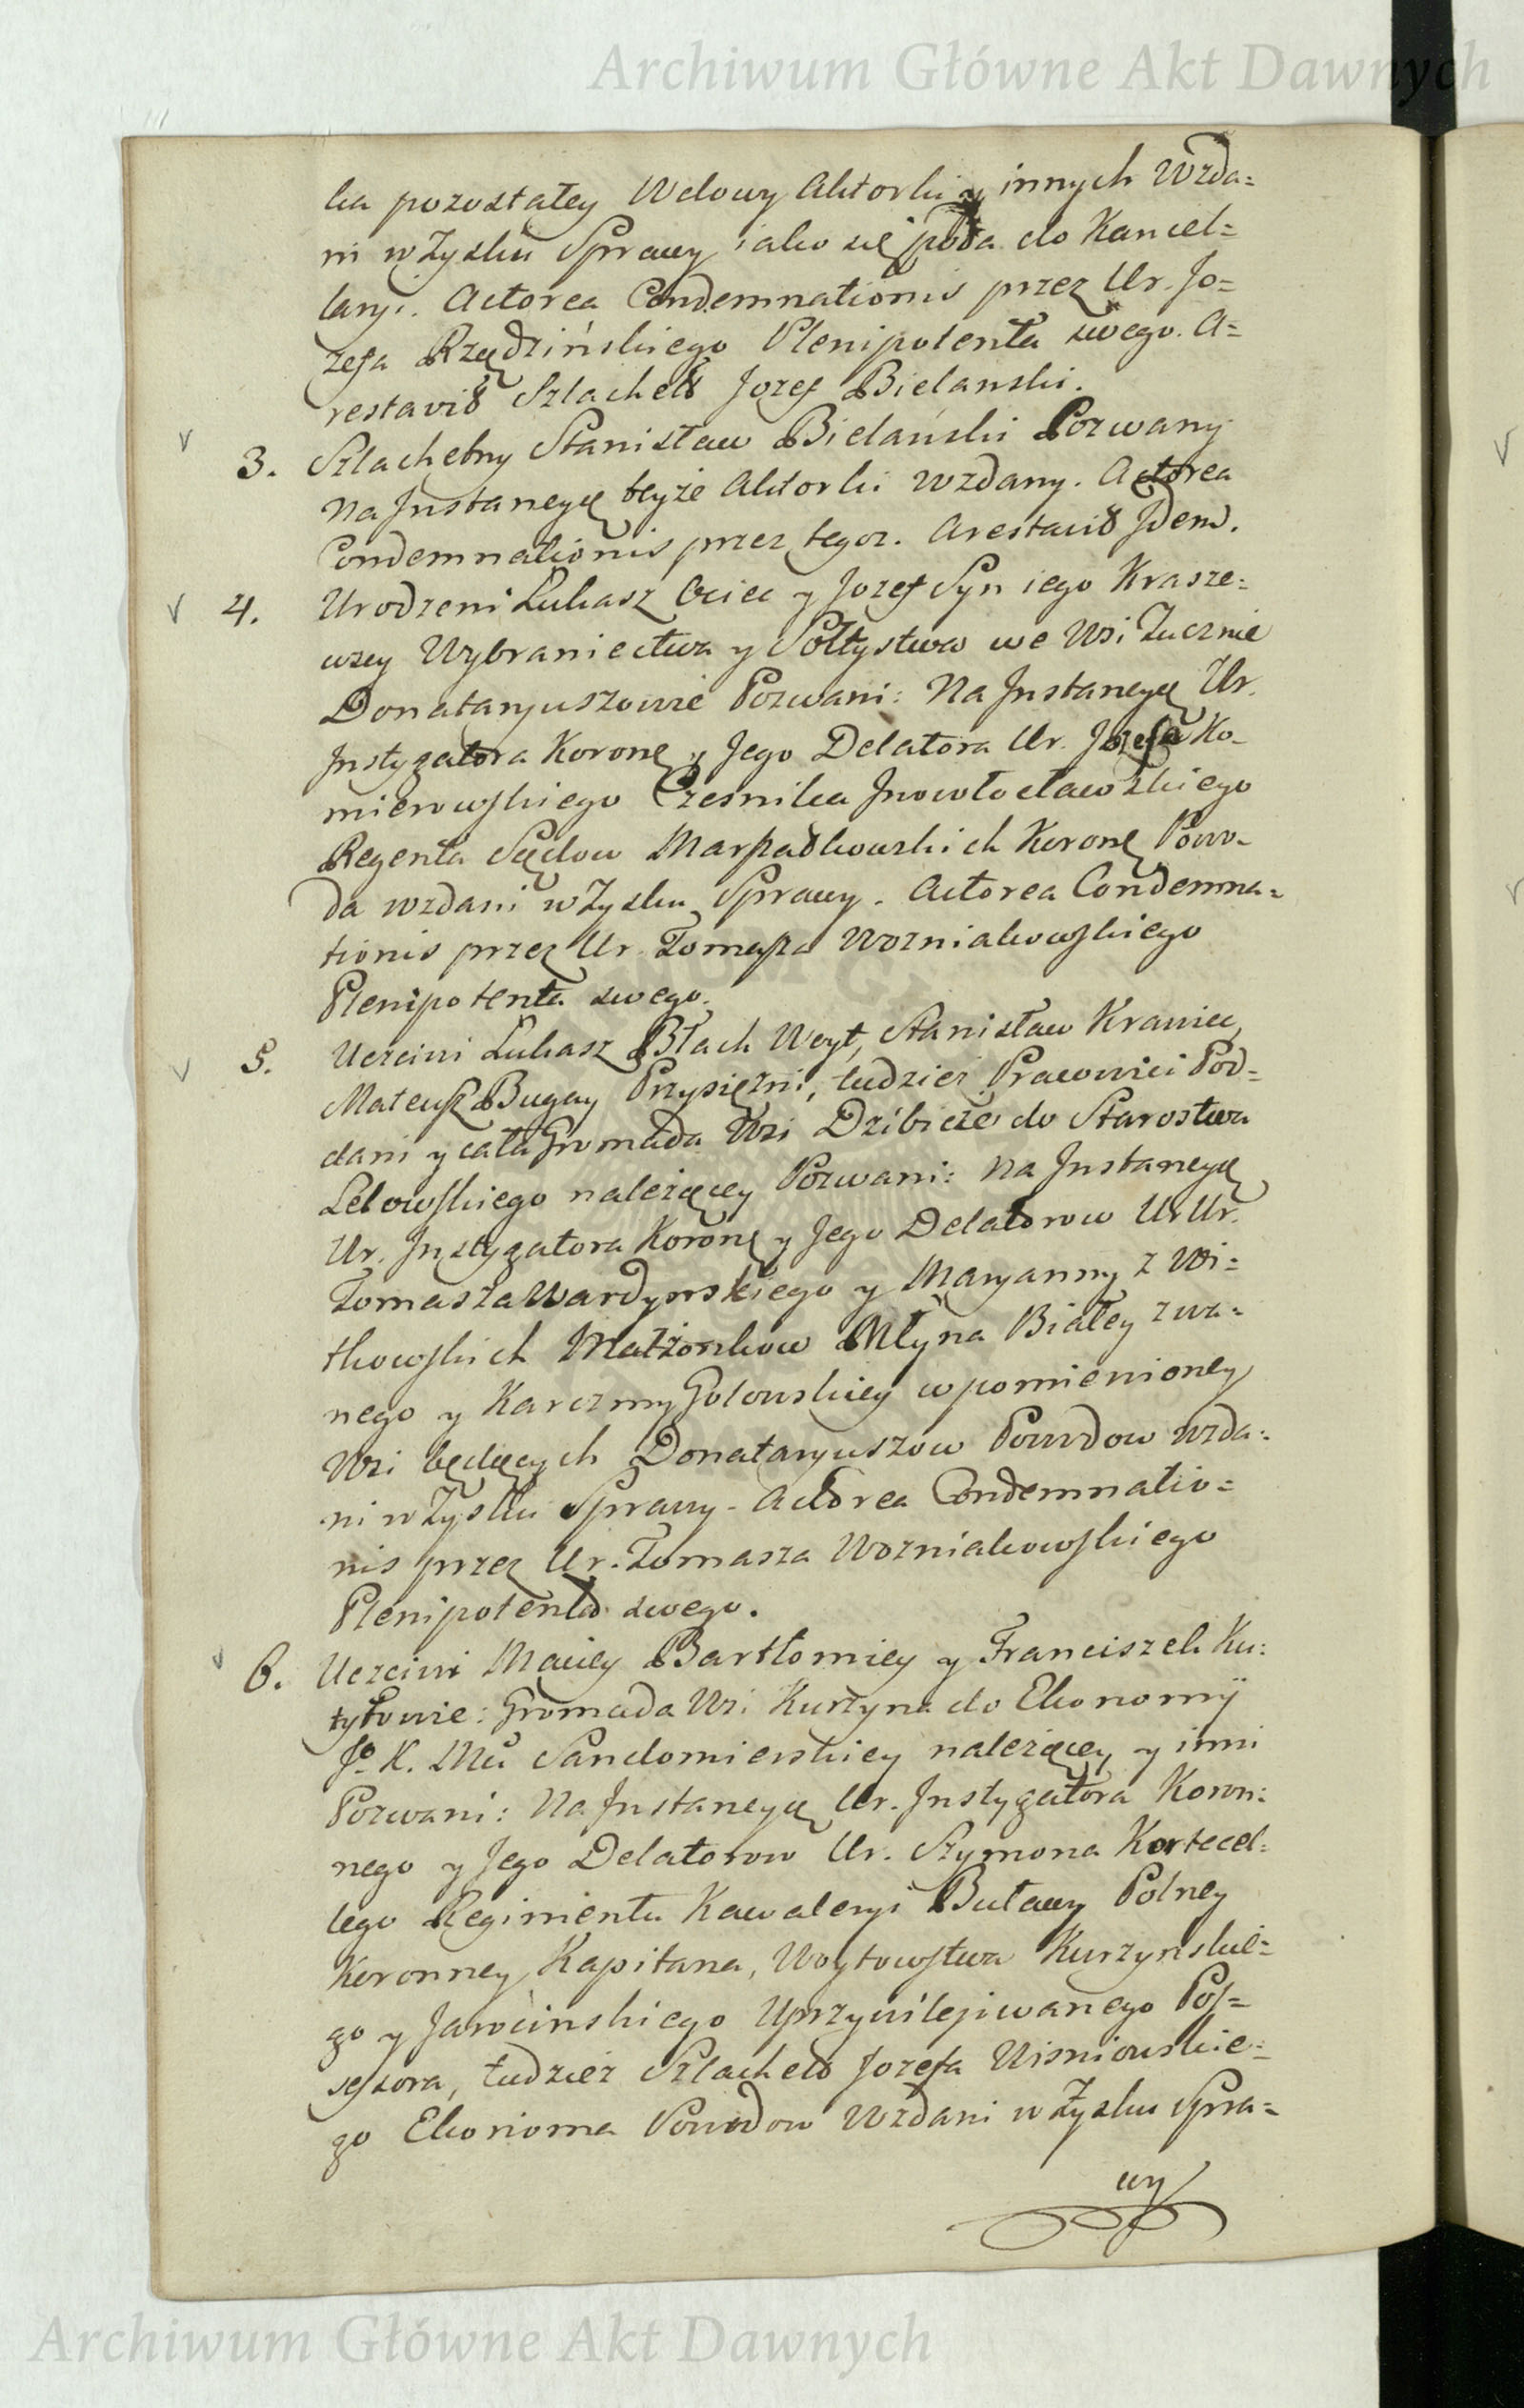 Archiwum Główne Akt Dawnych
ka pozostałey Wdowy Aktorki y innych Wzda=
ni w Zysku Sprawy iako się poda do Kancel=
laryi. Actorea Condemnationis przez Ur. Jo=
zefa Rzędzińskiego Plenipotenta swego. A=
restavit Szlachet Jozef Bielanski.
3. Szlachetny Stanisław Bielański Pozwany
Na Instancyę teyże Aktorki wzdany. Actorea
Condemnationis przez tegoz. Arestavit Idem.
4. Urodzeni Lukasz Ociec y Jozef Syn iego Krasze=
wscy Wybraniectwa y Sołtystwa we Wsi Zucznie
Donataryuszowie Pozwani: Na Instancyę Ur.
Instygatora Koronę y Jego Delatora Ur. Jozefa Ko=
mierowskiego Czesnika Inowłocławskiego
Regenta Sądow Marszałkowskich Koronę Powo=
da wzdani w Zysku Sprawy. Actorea Condemna=
tionis przez Ur. Tomasza Wozniakowskiego
Plenipotenta swego.
5. Uczciwi Lukasz Błach Woyt, Stanisław Krawiec,
Mateusz Bugay Przysiężni, tudzież Pracowici Pod=
dani y cała Gromada Wsi Dzibice do Starostwa
Lelowskiego należącey Pozwani: Na Instancyę
Ur. Instygatora Koronę y Jego Delatorow UrUr.
Tomasza Wardynskiego y Maryanny z Wi=
tkowskich Małżonkow Młyna Białey zwa=
nego y Karczmy Golowskiey w pomienioney
Wsi będących Donataryuszow Powodow wzda=
ni w Zysku Sprawy. Actorea Condemnatio=
nis przez Ur. Tomasza Wozniakowskiego
Plenipotenta swego.
6. Uczciwi Maciey Bartłomiey y Franciszek Ku=
tyłowie: Gromada Wsi Kurzyna do Ekonomÿ
Jo K. Mci Sandomierskiey należącey y inni
Pozwani: Na Instancyę Ur. Instygatora Koron=
nego y Jego Delatorow Ur. Szymona Kortecel=
lego Regimentu Kawaleryi Buławy Polney
Koronney Kapitana, Woytowstwa Kurzynskie=
go y Jarocinskiego Uprzywilejiwanego Pos=
sessora, tudzież Szlachet Jozefa Wisniowskie=
go Ekonoma Powodow Wzdani w Zysku Spra=
wy
Archiwum Główne Akt Dawnych